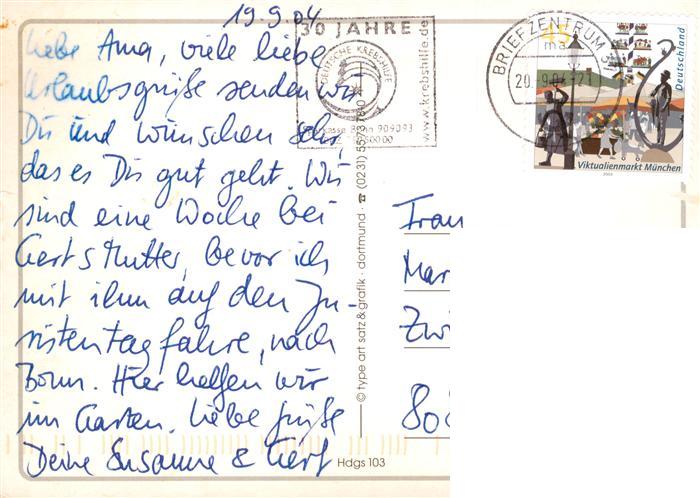 19.9.04
Liebe Ama, viele liebe
Urlaubsgrüße senden wir
Dir und wünschen sehr
das es Dir gut geht. Wir
sind eine Woche bei
Gerts Mutter, bevor ich
mit ihm auf den Ju-
ristentag fahre, nach
Bonn. Hier helfen wir
im Garten. Liebe Grüße
Deine Susanne & Gert
30 JAHRE
DEUTSCHE KREBSHILFE
www.krebshilfe.de
909093
BRIEFZENTRUM
20.-9.04-21
45
Deutschland
Viktualienmarkt München
2003
© type art satz & grafik · dortmund · ☎ (0231) 5573 7840
Hdgs 103
Frau
Mar
Zwi
80